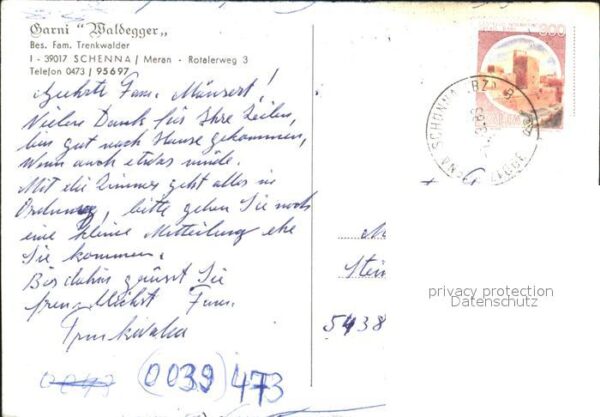 Garni "Waldegger"
Bes. Fam. Trenkwalder
I - 39017 SCHENNA / Meran - Rotalerweg 3
Telefon 0473 / 95697
Geehrte Fam. Mänsert!
Vielen Dank für Ihre Zeilen,
bin gut nach Hause gekommen,
Wenn auch etwas müde.
Mit die Zimmer geht alles in
Ordnung, bitte geben Sie noch
eine kleine Mitteilung ehe
Sie kommen.
Bis dahin grüsst Sie
freundlichst Fam.
Trenkwalder
0043 (0039) 473
Stein
5438
privacy protection
Datenschutz